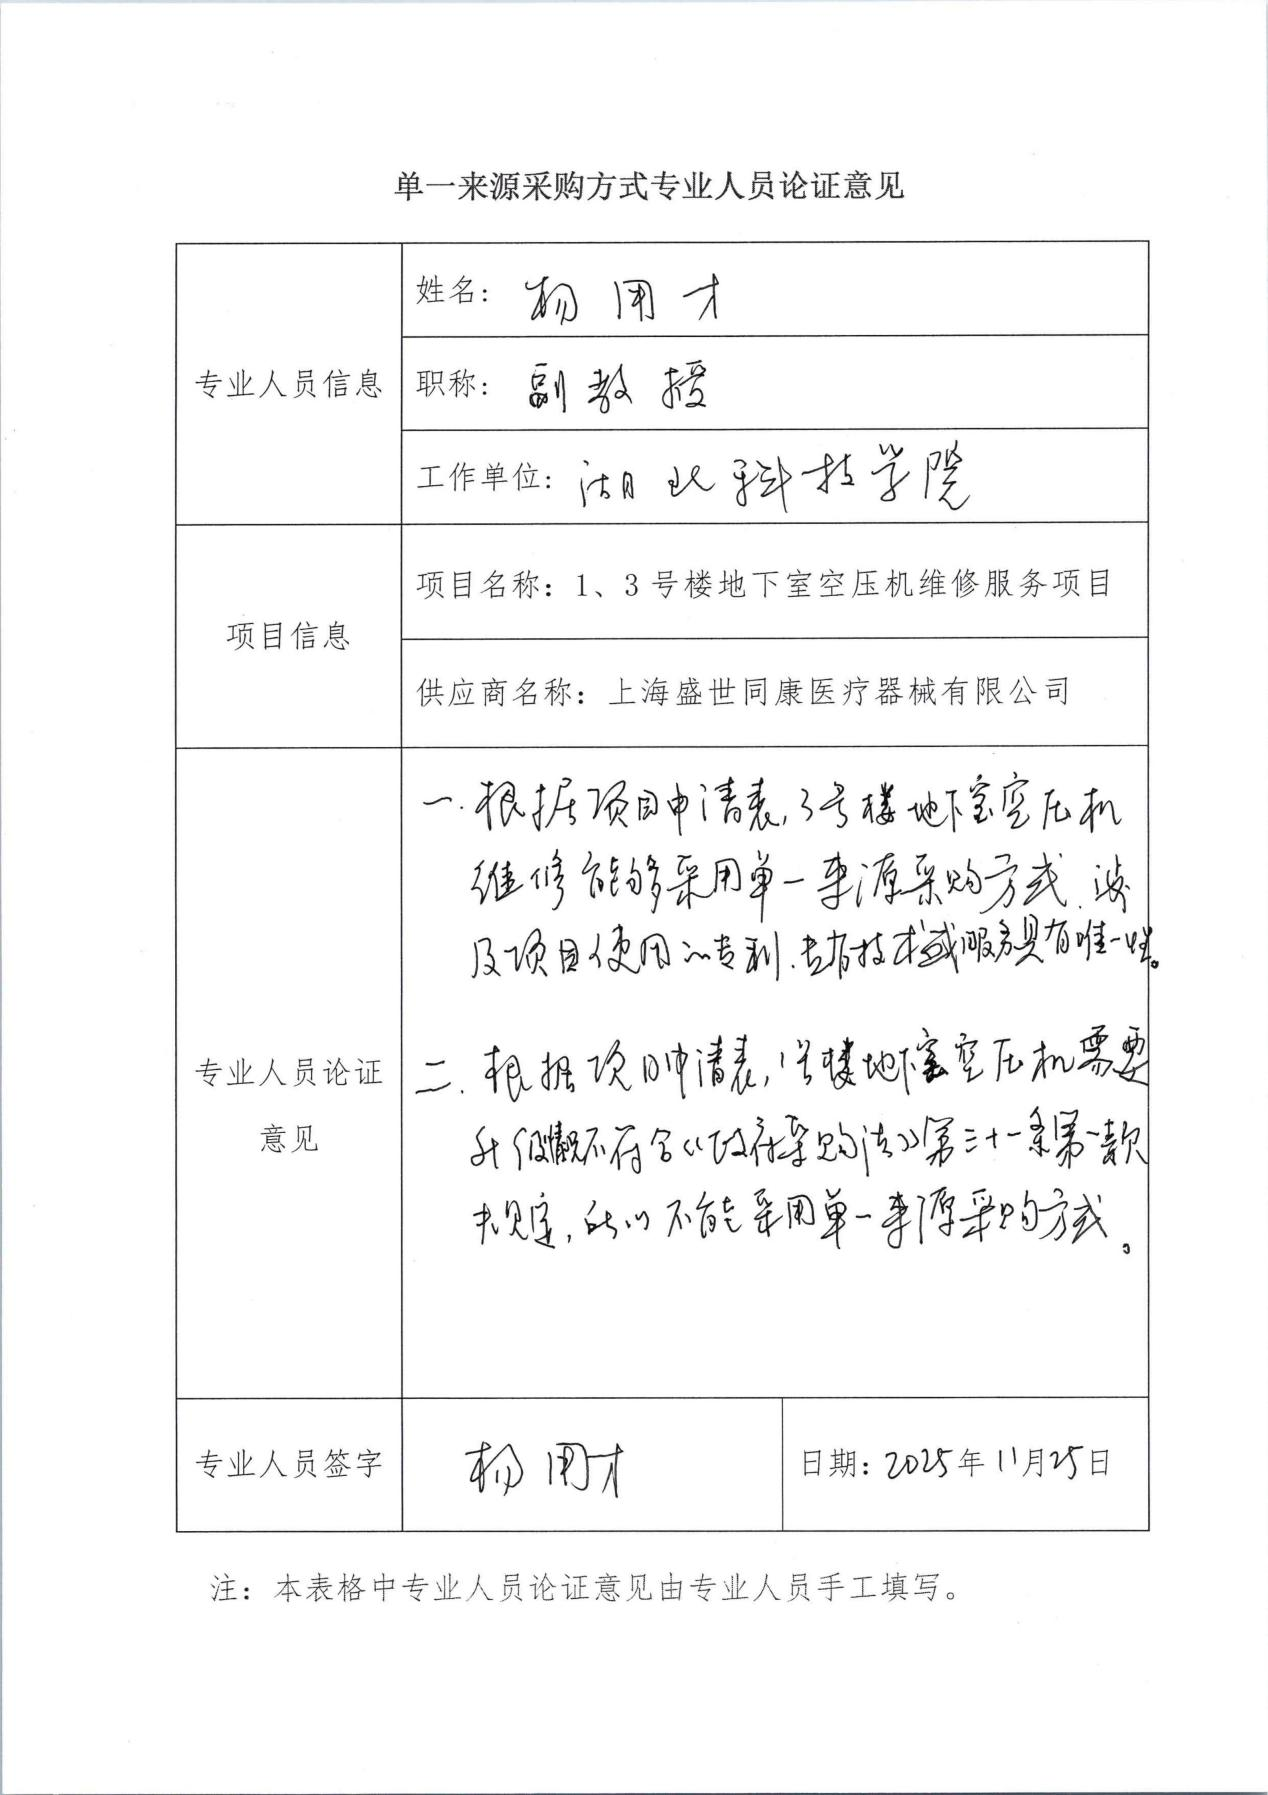 单一来源采购方式专业人员论证意见
专业人员信息
姓名：杨用才
职称：副教授
工作单位：湖北科技学院
项目信息
项目名称：1、3号楼地下室空压机维修服务项目
供应商名称：上海盛世同康医疗器械有限公司
专业人员论证
意见
一.根据项目申请表，3号楼地下室空压机
维修能够采用单一来源采购方式.涉
及项目使用的专利.专有技术或服务具有唯一性。
二.根据项目申请表，1号楼地下室空压机需要
升级情况不符合《政府采购法》第三十一条第一款
规定，所以不能采用单一来源采购方式。
专业人员签字
杨用才
日期：2025年11月25日
注：本表格中专业人员论证意见由专业人员手工填写。